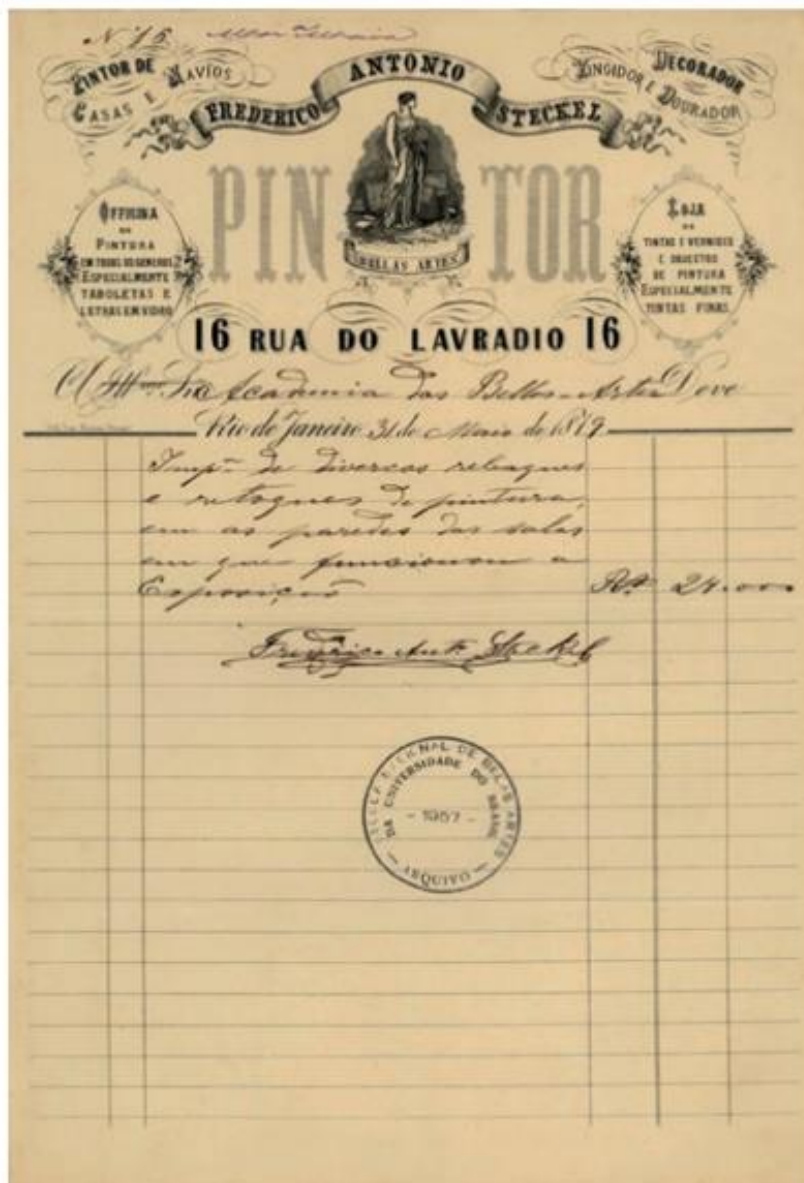 Nº 16
PINTOR DE
CASAS E NAVIOS
FREDERICO ANTONIO STECKEL
DECORADOR
FINGIDOR E DOURADOR
PINTOR
BELLAS ARTES
OFFICINA
DE
PINTURA
EM TODOS OS GENEROS
ESPECIALMENTE
TABOLETAS E
LETRAS EM VIDRO
LOJA
DE
TINTAS E VERNIZES
E OBJECTOS
DE PINTURA
ESPECIALMENTE
TINTAS FINAS.
16 RUA DO LAVRADIO 16
A Illmo. Snr. Academia das Bellas-Artes Deve
Rio de Janeiro 31 de Maio de 1879
Impª. de diversos reboques
e retoques de pintura,
em as paredes das salas
em que funcionou a
Exposição Rs 24.000
Frederico Antº Steckel
ESCOLA NACIONAL DE BELAS ARTES
DA UNIVERSIDADE DO BRASIL
- 1957 -
ARQUIVO